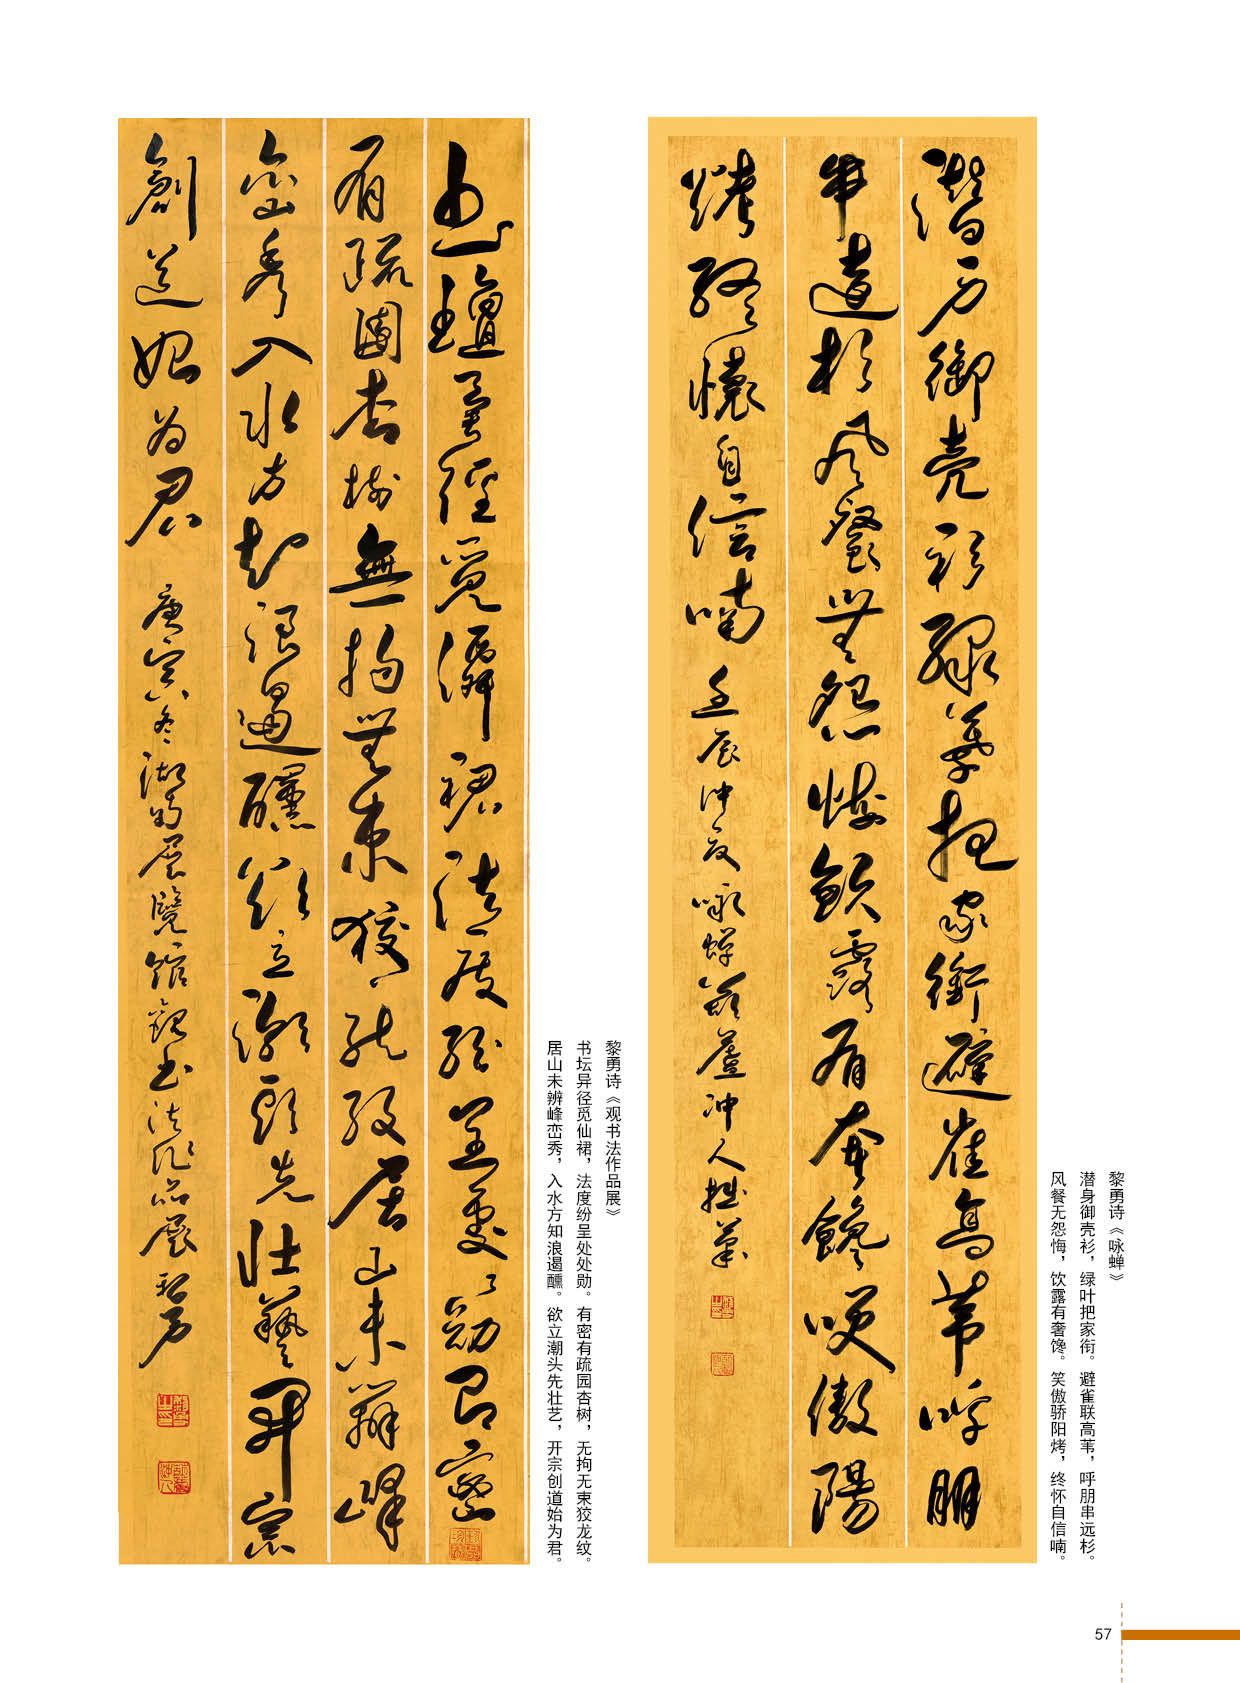 黎勇诗《咏蝉》
潜身御壳衫，绿叶把家衔。避雀联高苇，呼朋串远杉。
风餐无怨悔，饮露有奢馋。笑傲骄阳烤，终怀自信喃。
潛身御壳衫綠葉把家銜避雀高苇呼朋
串遠杉風餐無怨悔飲露有奢饞咲傲陽
烤終懷自信喃 壬辰仲夏咏蟬蘆冲人拙筆
黎勇诗《观书法作品展》
书坛异径觅仙裙，法度纷呈处处勋。有密有疏园杏树，无拘无束狡龙纹。
居山未辨峰峦秀，入水方知浪遏醺。欲立潮头先壮艺，开宗创道始为君。
书壇異徑覓僊裙法度紛呈處々勛有密
有疏園杏樹無拘無束狡龍紋居山未辨峰
巒秀入水方知浪遏醺欲立潮頭先壯藝開宗
創道始為君 庚寅冬湖南展覽館觀书法作品展 黎勇
57